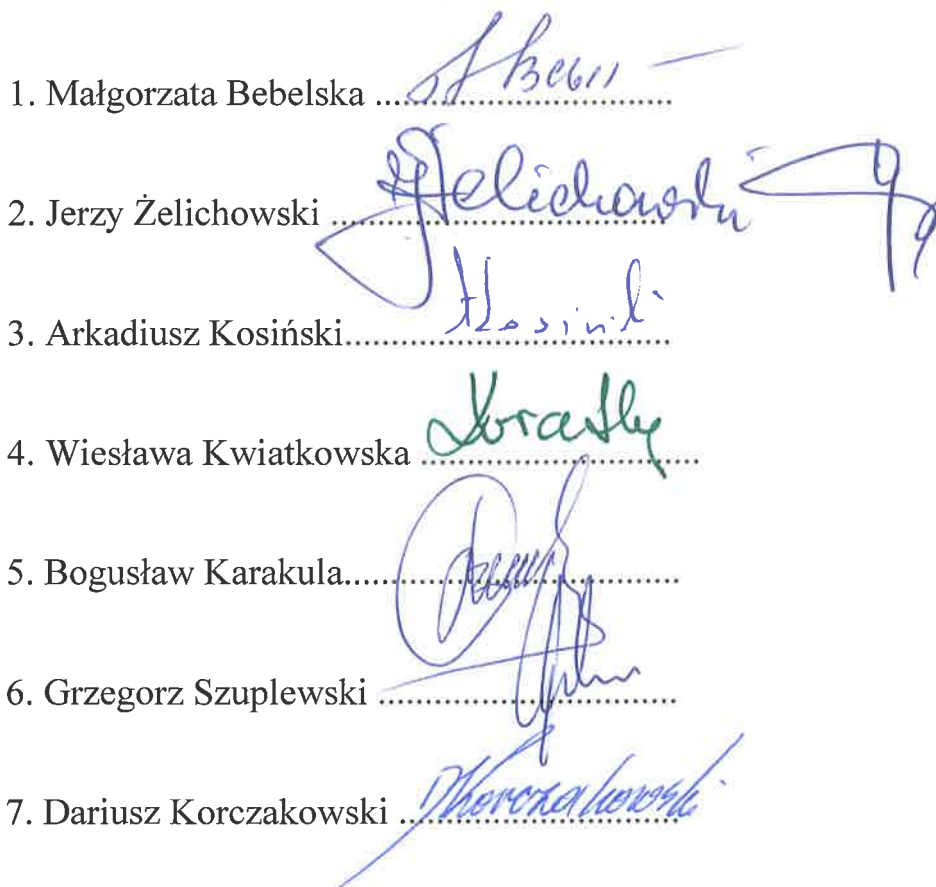 1. Małgorzata Bebelska ..........................
2. Jerzy Żelichowski .......... Żelichowski
3. Arkadiusz Kosiński..........................
4. Wiesława Kwiatkowska ......................
5. Bogusław Karakula..........................
6. Grzegorz Szuplewski ........................
7. Dariusz Korczakowski .......... DKorczakowski